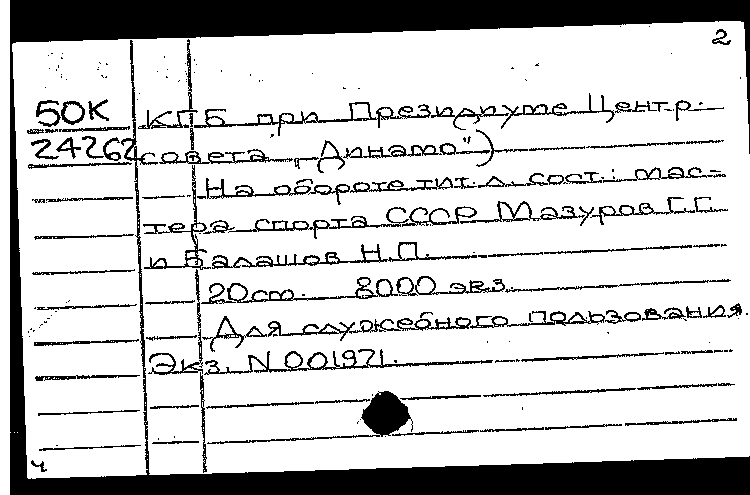 2
50К КПБ при Президиуме Центр.
24262 совета „Динамо")
На обороте тит. л. сост.: мас-
тера спорта СССР Мазуров Г.Г.
и Балашов Н.П.
20 см. 8000 экз.
Для служебного пользования.
Экз. N 001971.
ч